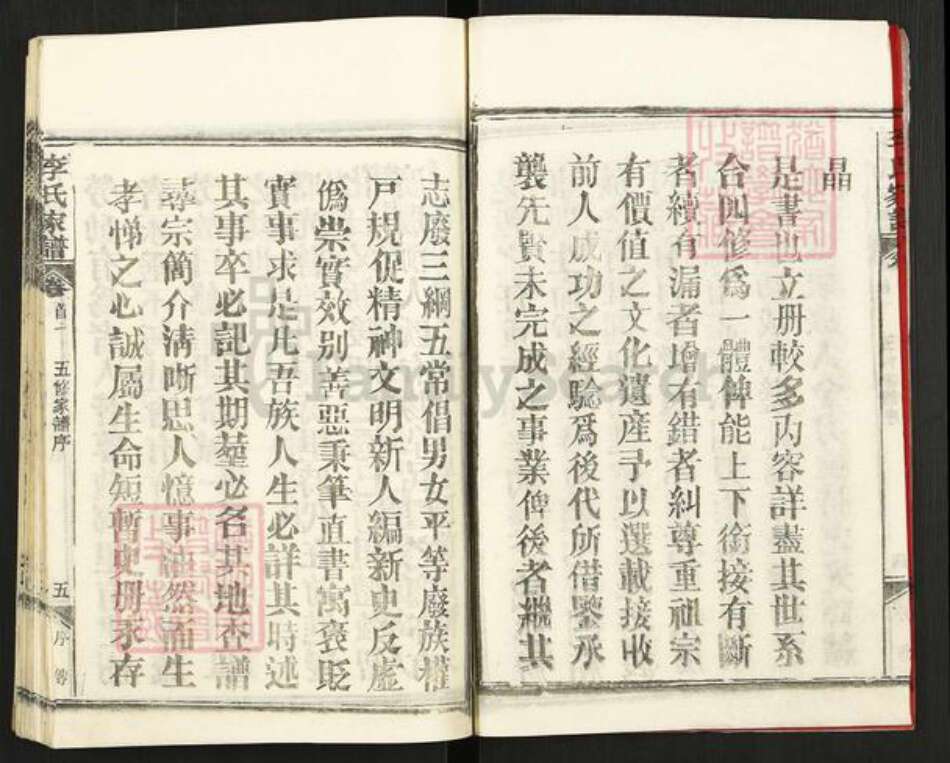 晶
是書也立册較多內容詳盡其世系
合四修爲一體俾能上下銜接有斷
者續有漏者增有錯者糾尊重祖宗
有價值之文化遺産予以選載接收
前人成功之經驗爲後代所借鑒承
襲先賢未完成之事業俾後者繼其
志廢三綱五常倡男女平等廢族權
戸規促精神文明新人編新史反虛
僞崇實效别善惡秉筆直書寓褒貶
實事求是凡吾族人生必詳其時述
其事卒必記其期塟必名其地查譜
尋宗簡介清晰思人憶事油然而生
孝悌之心誠屬生命短暫史册永存
李氏家譜
卷首一
五修家譜序
五
序
FamilySearch